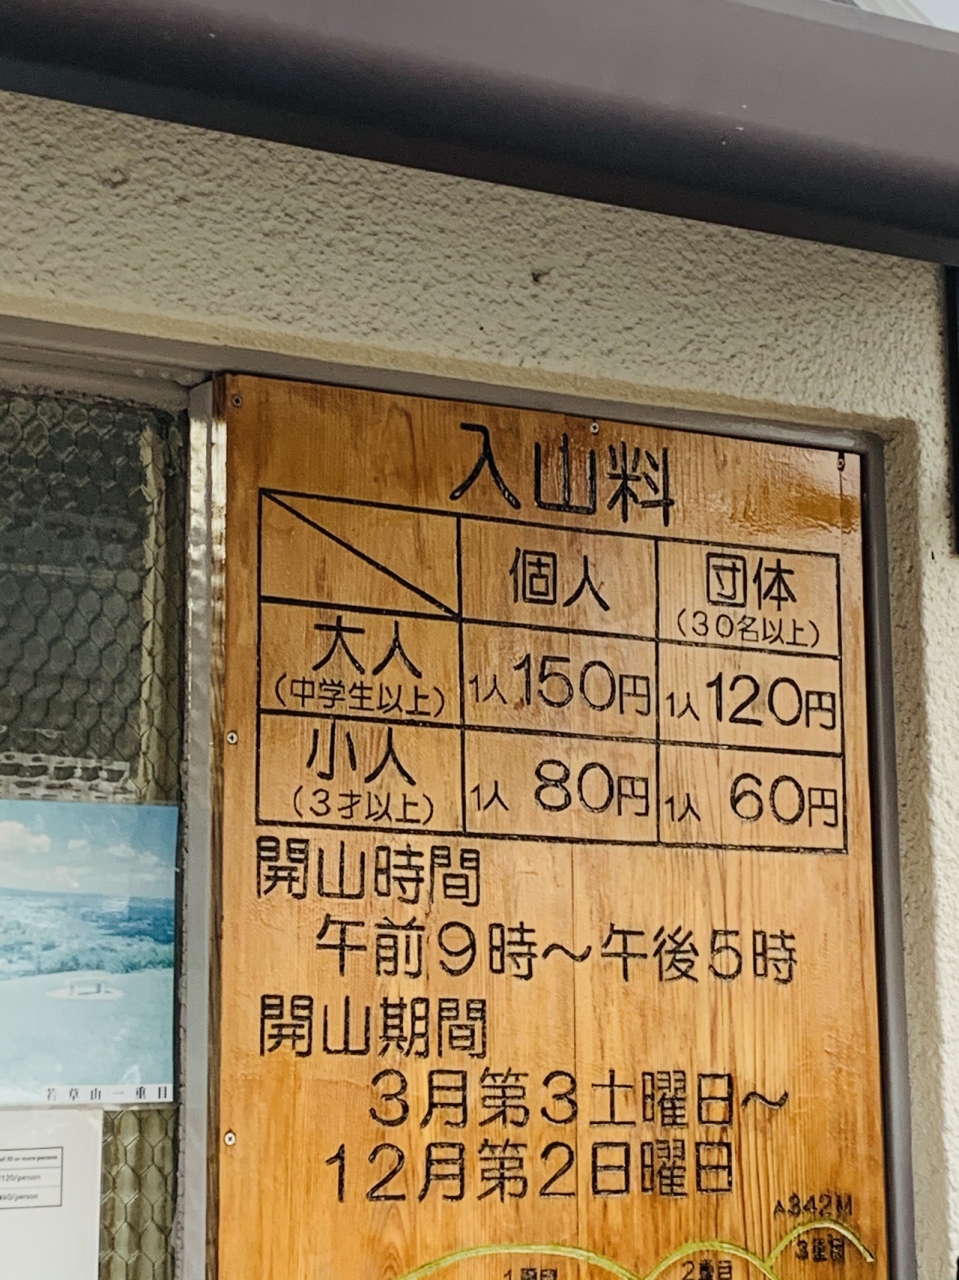 入山料
個人 団体
(30名以上)
大人 1人150円 1人120円
(中学生以上)
小人 1人 80円 1人 60円
(3才以上)
開山時間
午前9時〜午後5時
開山期間
3月第3土曜日〜
12月第2日曜日
342M
3重目
1重目 2重目
若草山一重目
of 30 or more persons
120/person
60/person